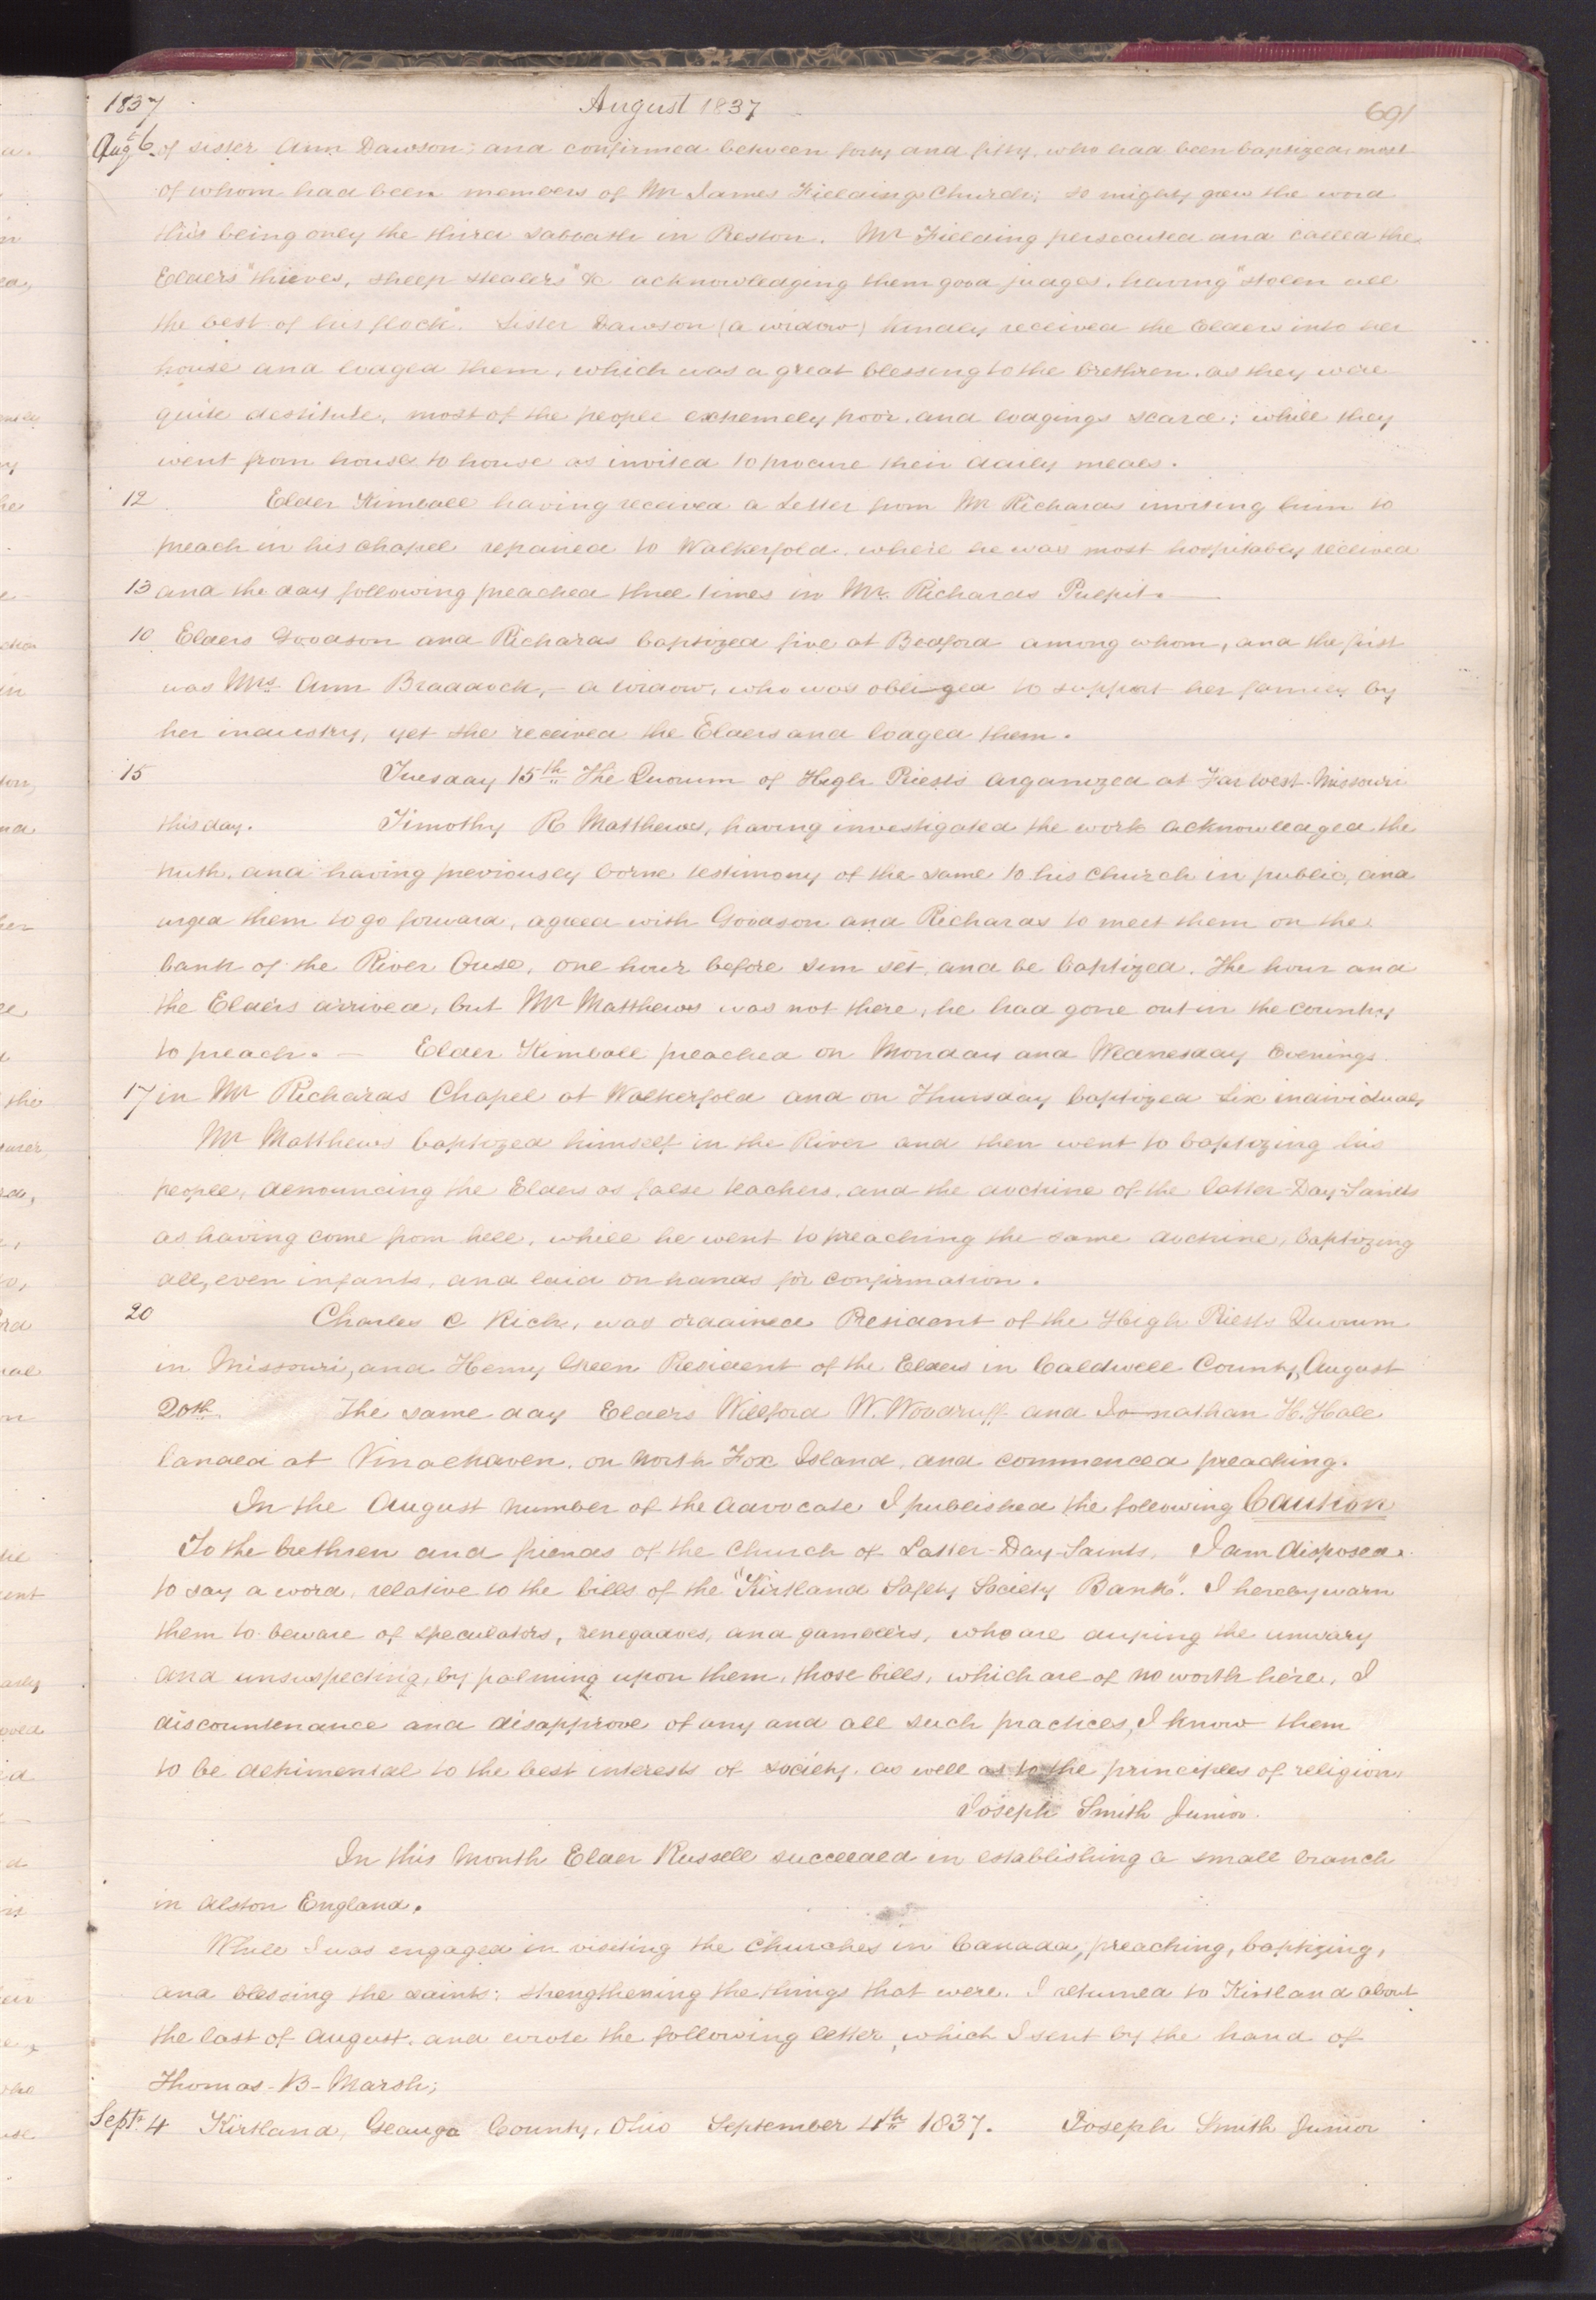 1837 August 1837 691
Augt 6 of sister Ann Dawson; and confirmed between forty and fifty, who had been baptized, most
of whom had been members of Mr James Fieldings Church; so mighty grew the word
this being only the third sabbath in Preston. Mr Fielding persecuted and called the
Elders "thieves, sheep stealers" &c acknowledging them good judges, having "stolen all
the best of his flock". Sister Dawson (a widow) kindly received the Elders into her
house and lodged them, which was a great blessing to the brethren, as they were
quite destitute, most of the people extremely poor, and lodgings scarce; while they
went from house to house as invited to procure their daily meals.
12 Elder Kimball having received a Letter from Mr Richards inviting him to
preach in his chapel repaired to Walkerfold, where he was most hospitably received
13 and the day following preached three times in Mr. Richards Pulpit.
10 Elders Goodson and Richards baptized five at Bedford among whom, and the first
was Mrs. Ann Braddock, — a widow, who was obliged to support her family by
her industry, yet she received the Elders and lodged them.
15 Tuesday 15th The Quorum of High Priests organized at Far West Missouri
this day. Timothy R Matthews, having investigated the work acknowledged the
truth, and having previously borne testimony of the same to his church in public, and
urged them to go forward, agreed with Goodson and Richards to meet them on the
bank of the River Ouse, one hour before sun set, and be baptized. The hour and
the Elders arrived, but Mr Matthews was not there, he had gone out in the country
to preach. — Elder Kimball preached on Monday and Wednesday Evenings
17 in Mr Richards Chapel at Walkerfold and on Thursday baptized six individuals
Mr Matthews baptized himself in the River and then went to baptizing his
people, denouncing the Elders as false teachers, and the doctrine of the Latter-Day-Saints
as having come from hell, while he went to preaching the same doctrine, baptizing
all, even infants, and laid on hands for confirmation.
20 Charles C Rich, was ordained President of the High Priests Quorum
in Missouri, and Henry Green President of the Elders in Caldwell County, August
20th. The same day Elders Willford W. Woodruff and Jonathan H. Hale
landed at Vinalhaven, on North Fox Island, and commenced preaching.
In the August number of the Advocate I published the following Caution
To the brethren and friends of the Church of Latter-Day-Saints, I am disposed
to say a word, relative to the bills of the "Kirtland Safety Society Bank". I hereby warn
them to beware of speculators, renegadoes, and gamblers, who are duping the unwary
and unsuspecting, by palming upon them, those bills, which are of no worth here, I
discountenance and disapprove of any and all such practices, I know them
to be detrimental to the best interests of society, as well as to the principles of religion,
Joseph Smith Junior.
In this Month Elder Russell succeeded in establishing a small branch
in Alston England.
While I was engaged in visiting the Churches in Canada, preaching, baptizing,
and blessing the saints; strengthening the things that were. I returned to Kirtland about
the last of August, and wrote the following letter, which I sent by the hand of
Thomas-B-Marsh;
Septr 4 Kirtland, Geauga County, Ohio September 4th 1837. Joseph Smith Junior